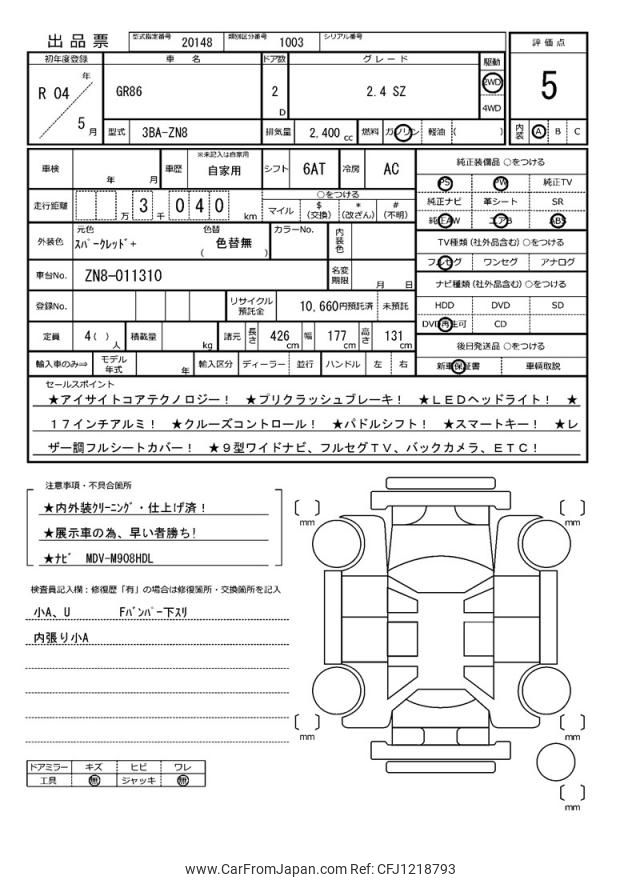 出品票 型式指定番号 20148 類別区分番号 1003 シリアル番号
評価点
5
内装 A B C
初年度登録 車名 ドア数 グレード 駆動
R 04 年 5 月 GR86 2 D 2.4 SZ 2WD 4WD
型式 3BA-ZN8 排気量 2,400 cc 燃料 ガソリン 軽油 ( )
車検 年 月 車歴 ※未記入は自家用 自家用 シフト 6AT 冷房 AC
走行距離 万 3 千 0 4 0 km ○をつける
マイル $(交換) *(改ざん) #(不明)
外装色 元色 スパークレッド+ 色替 ( 色替無 ) カラーNo. 内装色
車台No. ZN8-011310 名変期限 月 日
登録No. リサイクル預託金 10,660円預託済 未預託
定員 4 ( ) 人 積載量 kg 諸元 長さ 426 cm 幅 177 cm 高さ 131 cm
輸入車のみ⇒ モデル年式 年 輸入区分 ディーラー 並行 ハンドル 左 右
純正装備品 ○をつける
PS PW 純正TV
純正ナビ 革シート SR
純正AW エアB ABS
TV種類(社外品含む)○をつける
フルセグ ワンセグ アナログ
ナビ種類(社外品含む)○をつける
HDD DVD SD
DVD再生可 CD
後日発送品 ○をつける
新車保証書 車輌取説
セールスポイント
★アイサイトコアテクノロジー! ★プリクラッシュブレーキ! ★LEDヘッドライト! ★
17インチアルミ! ★クルーズコントロール! ★パドルシフト! ★スマートキー! ★レ
ザー調フルシートカバー! ★9型ワイドナビ、フルセグTV、バックカメラ、ETC!
注意事項・不具合箇所
★内外装クリーニング・仕上げ済!
★展示車の為、早い者勝ち!
★ナビ MDV-M908HDL
検査員記入欄:修復歴「有」の場合は修復箇所・交換箇所を記入
小A、U Fバンパー下スリ
内張り小A
ドアミラー キズ ヒビ ワレ
工具 無 ジャッキ 無
mm
mm
mm
mm
mm
www.CarFromJapan.com Ref: CFJ1218793